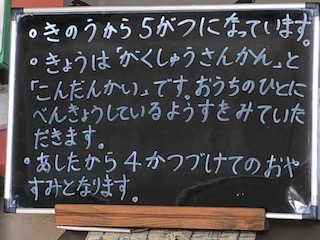 ・きのうから5がつになっています。
・きょうは「がくしゅうさんかん」と
「こんだんかい」です。おうちのひとに
べんきょうしているようすをみていた
だきます。
・あしたから4かつづけてのおや
すみとなります。